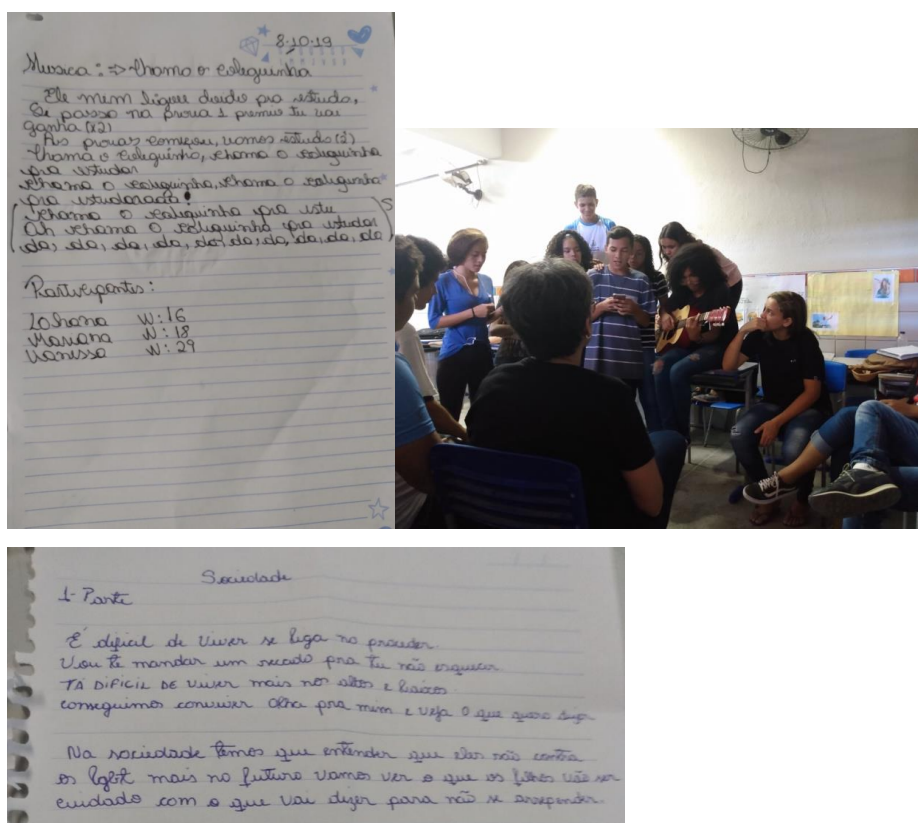 8-10-19
Musica: => Chama o coleguinha
Ele mem ligou doido pra estudo,
Se passo na prova 1 premio tu vai
ganha (x2)
As provas começou, vamos estudo (2)
Chama o coleguinho, chama o coleguinha
pra estudar
chama o coleguinha, chama o coleguinha
pra estudar
chama o coleguinha pra estu
Ah chama o coleguinha pra estudar
da, da, da, da, da, da, da, da, da, da
Participantes:
Lohana N: 16
Mariana N: 18
Vanissa N: 29
Sociedade
1- Parte
É dificial de viver se liga no proceder.
Vou te mandar um recado pra tu não esquecer
TÁ DIFICIL DE viver mais nos altos e baixos
conseguimos conviver Olha pra mim e veja O que quero dizer
Na sociedade temos que entender que eles não contra
os lgbt mais no futuro vamos ver o que os filhos vão ser
cuidado com o que vai dizer para não se arrepender.